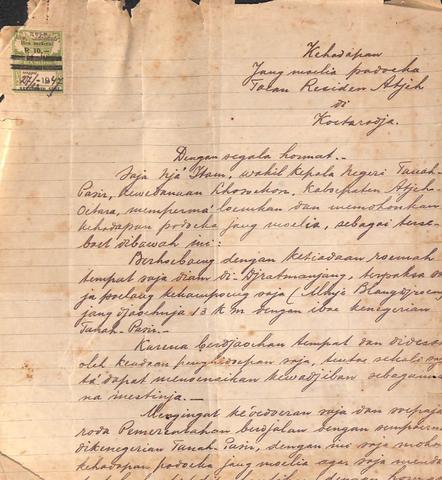 R 10,-
1947
Kehadapan
Jang moelia padoeka
Toean Residen Atjeh
di
Koetaradja.
Dengan segala hormat.-
Saja Njá Itam, wakil Kepala Negeri Tanah-
Pasir, kewedanaan Lhoseukon, Kaboepaten Atjeh-
Oetara, mempermá'loemkan dan memohonkan
kehadapan padoeka jang moelia, sebagai terse-
boet dibawah ini:
Berhoeboeng dengan ketiadaan roemah
tempat saja diam di-Djratmanjang, terpaksa sa-
ja poelang kekampoeng saja (Alhij Blang
jang djaoehnja 13 KM dengan iboe kenegerian
Tanah-Pasir.-
Karena berdjaoehan tempat dan didesak
oleh keadaan penghidoepan saja, tentoe sekali saja
tá' dapat menoenaikan kewadjiban sebagaima-
na mestinja.-
Mengingat keoedzoeran saja dan soepaja
roda Pemerentahan berdjalan dengan sempoerna
dikenegerian Tanah-Pasir, dengan ini saja mohon
kehadapan padoeka jang moelia agar saja
dengan hormat